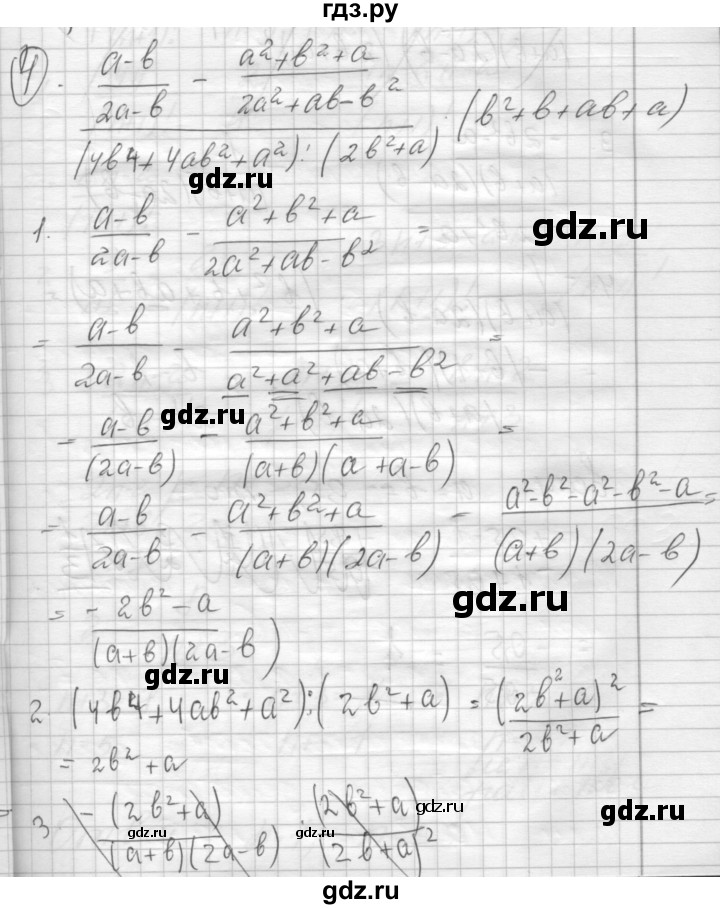 гдз.ру
4. ((a-b)/(2a-b) - (a²+b²+a)/(2a²+ab-b²)) / ((4b⁴+4ab²+a²):(2b²+a)) · (b²+b+ab+a)
gdz.ru
gdz.ru
1. (a-b)/(2a-b) - (a²+b²+a)/(2a²+ab-b²) =
= (a-b)/(2a-b) - (a²+b²+a)/(a²+a²+ab-b²) =
gdz.ru
= (a-b)/(2a-b) - (a²+b²+a)/((a+b)(a+a-b)) =
= (a-b)/(2a-b) - (a²+b²+a)/((a+b)(2a-b)) = (a²-b²-a²-b²-a)/((a+b)(2a-b)) =
gdz.ru
= (-2b²-a)/((a+b)(2a-b))
gdz.ru
2 (4b⁴+4ab²+a²):(2b²+a) = (2b²+a)²/(2b²+a) =
= 2b²+a
gdz.ru
gdz.ru
3 -(2b²+a)/((a+b)(2a-b)) : (2b²+a)/(2b+a)²
gdz.ru
gdz.ru
gdz.ru